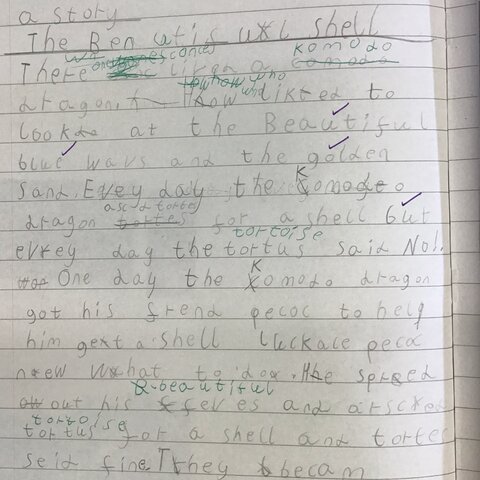 a story
The Beautiful shell
There was once lived a komodo
dragon who likted to
look at the Beautiful
blue wavs and the golden
sand. Evey day the Komodo
dragon ascd tortes for a shell but
evrey day the tortus tortoise said No!.
One day the Komodo dragon
got his frend pecoc to help
him get a shell luckace peca
new what to do. He spred
out his beautiful feves and arscked
tortoise for a shell and tortes
seid fine They becam